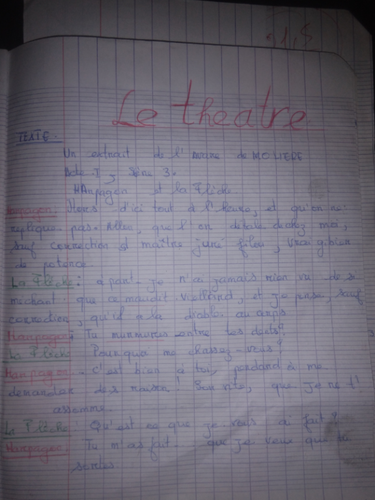 Le theatre
TEXTE
Un extrait de l'avare de MOLIERE
Acte I, Scène 3.
HArpagon et la Flèche
Harpagon: Hors d'ici tout à l'heure, et qu'on ne
replique pas. Allons, que l'on detale de chez moi,
juré filou, vrai gibier
de potence.
La Flèche: à part- je n'ai jamais rien vu de si
méchant que ce maudit vieillard, et je pense, sauf
correction, qu'il a le diable au corps
Harpagon: Tu murmures entre tes dents?
La Flèche: Pourquoi me chassez-vous?
Harpagon: c'est bien à toi, pendard à me
demander des raison! Sors vite, que je ne t'
assomme.
La Flèche: Qu'est ce que je vous ai fait?
Harpagon: Tu m'as fait que je veux que tu
sortes